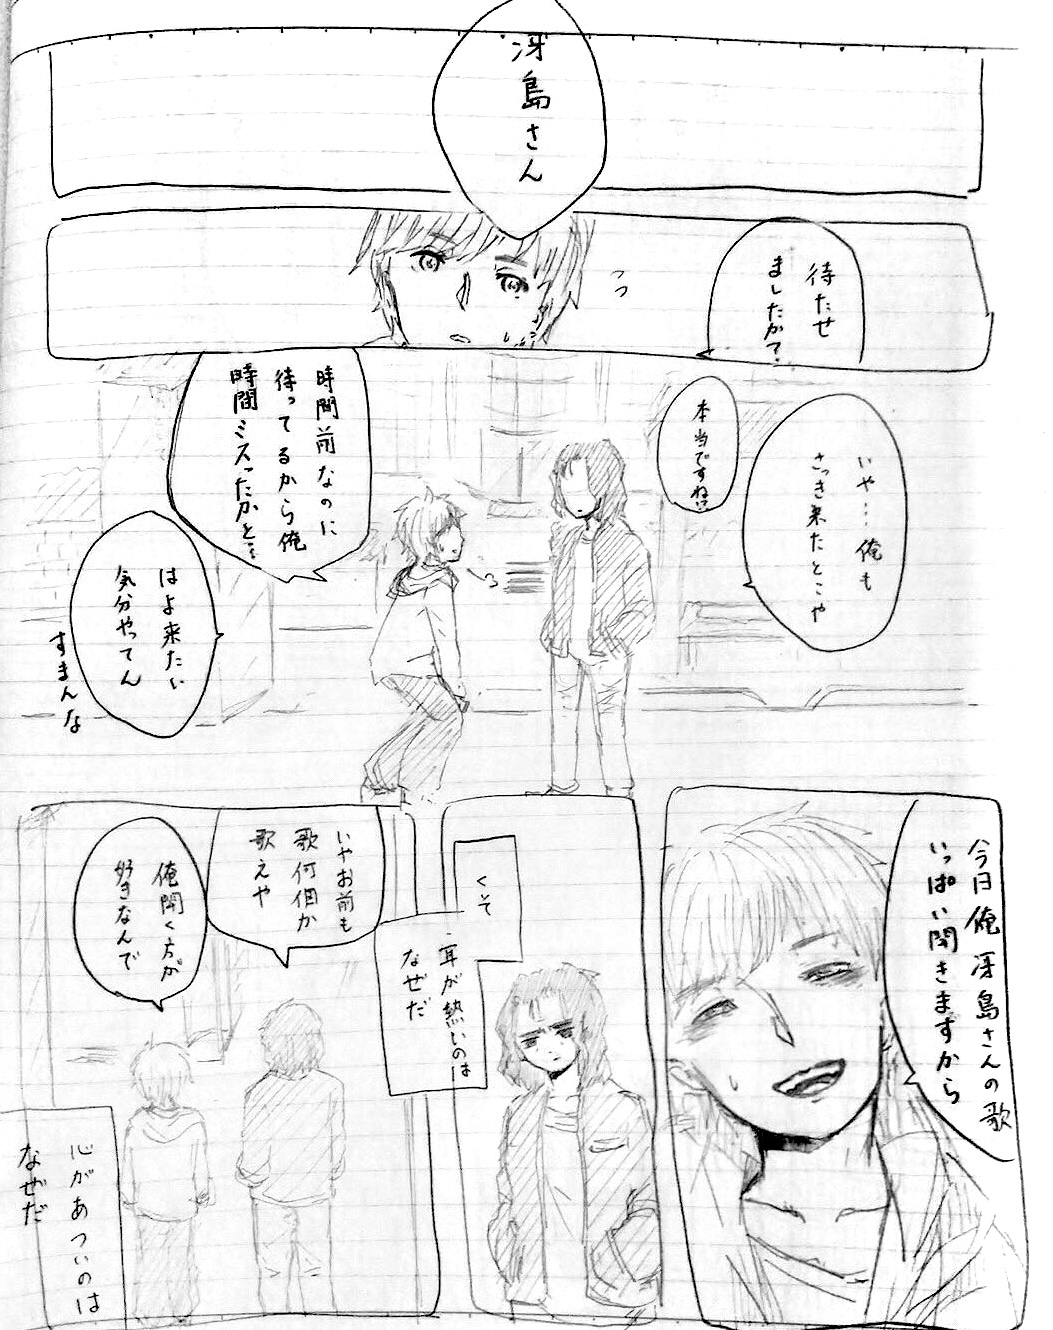 冴島さん
待たせ
ましたか?
いや…俺も
さっき来たとこや
本当ですね!?
時間前なのに
待ってるから俺
時間ミスったかと…
はよ来たい
気分やってん
すまんな
今日俺冴島さんの歌
いっぱい聞きますから
くそ
耳が熱いのは
なぜだ
いやお前も
歌何個か
歌えや
俺聞く方が
好きなんで
心があついのは
なぜだ